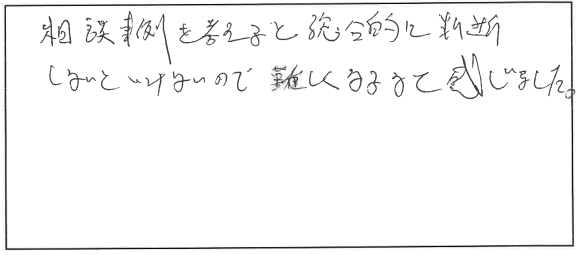 相談事例を考えると総合的に判断
しないといけないので難しくなるなと感じました。